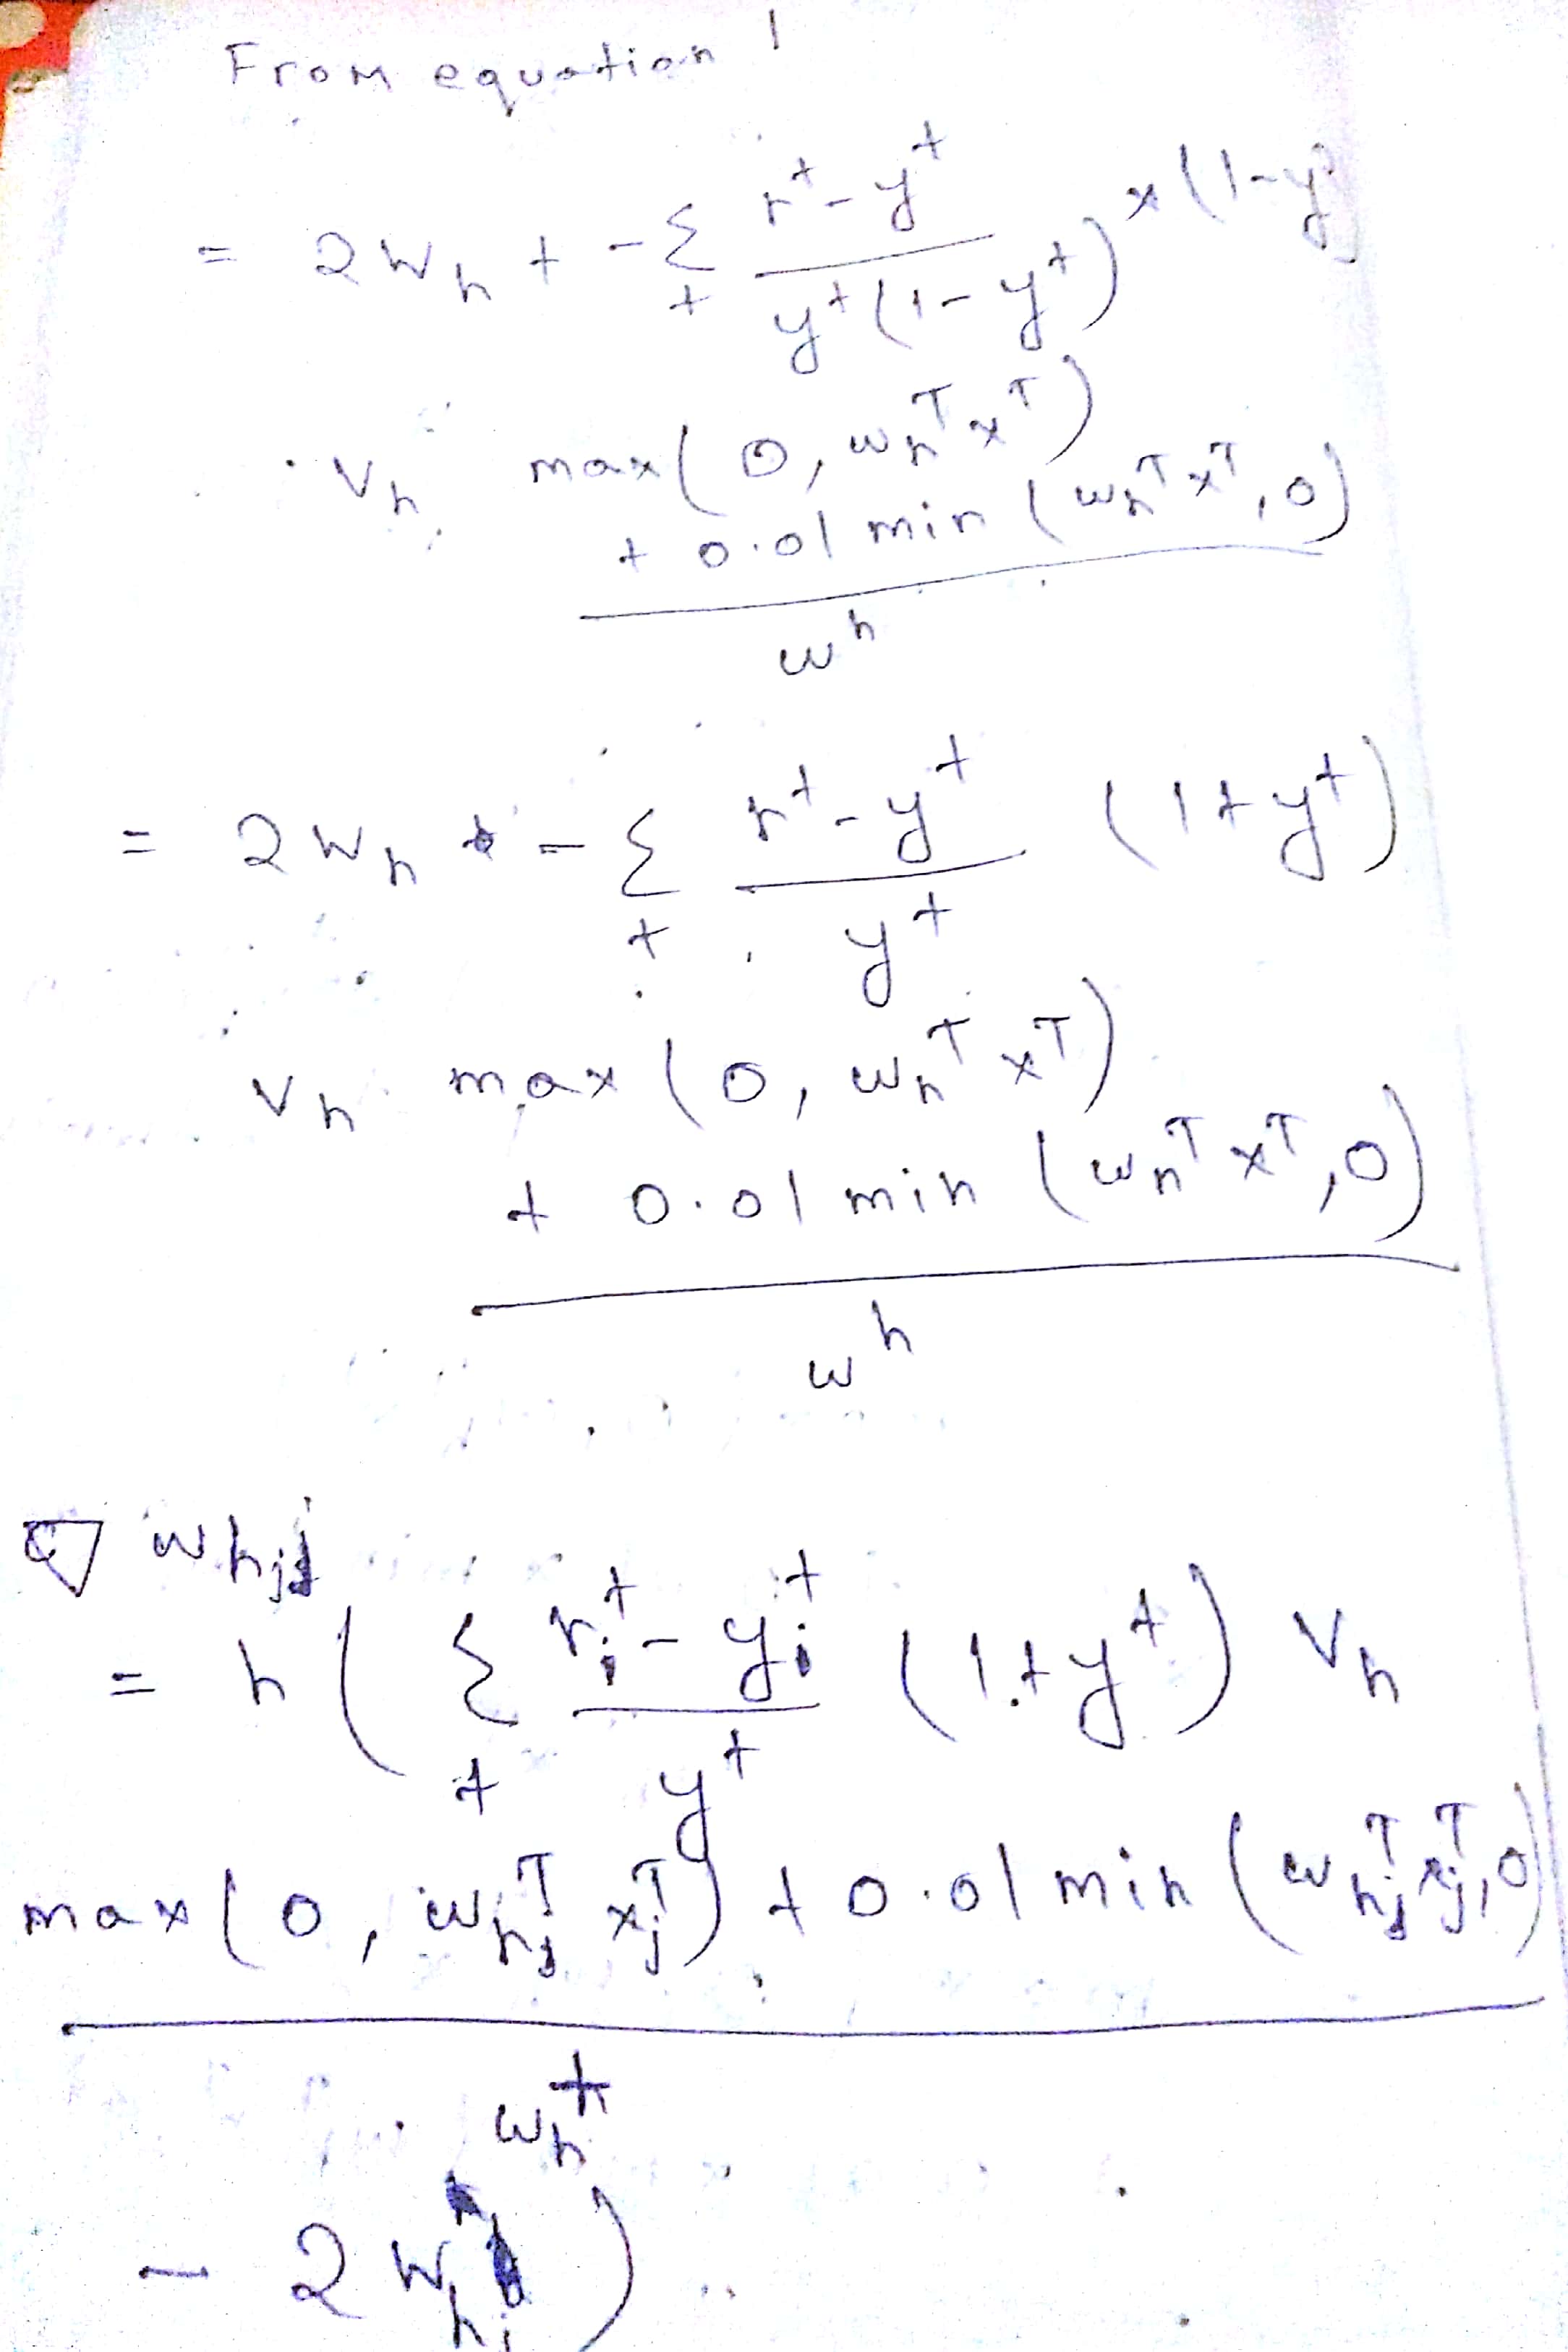 From equation 1
= 2 w_h + - Σ_t (r^t - y^t) / (y^t (1 - y^t)) × (1 - y
v_h (max(0, w_h^T x^T)
+ 0.01 min (w_h^T x^T, 0)) / w^h
= 2 w_h - Σ_t (r^t - y^t) / y^t (1 + y^t)
v_h (max (0, w_h^T x^T)
+ 0.01 min (w_h^T x^T, 0)) / w^h
∇ w_hj
= h ( Σ_t (r_i^t - y_i^t) / y^t (1 + y^t) ) v_h
(max (0, w_hj^T x_j^T) + 0.01 min (w_hj^T x_j^T, 0)) / w_h
- 2 w_hj )